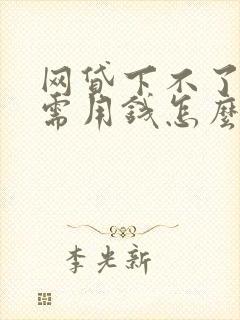 网贷下不了
需用钱怎麽
李光新